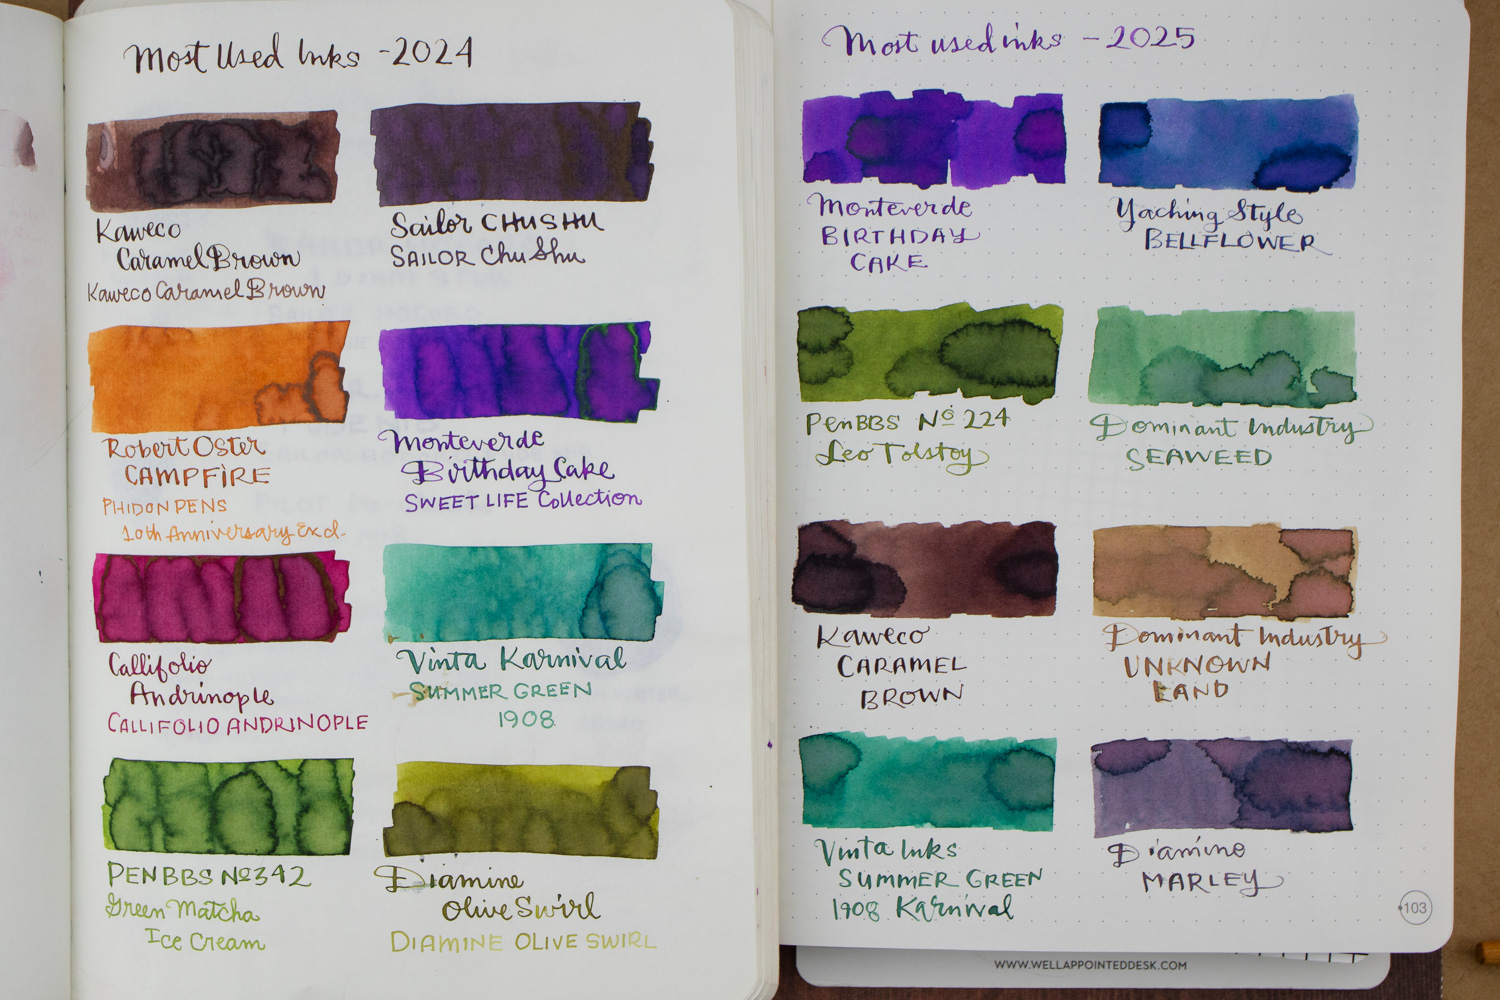 Most Used Inks - 2024
Kaweco
Caramel Brown
Kaweco Caramel Brown
Sailor CHUSHU
SAILOR Chu Shu
Robert Oster
CAMPFIRE
PHIDON PENS
10th Anniversary Excl.
Monteverde
Birthday Cake
SWEET LIFE Collection
Callifolio
Andrinople
CALLIFOLIO ANDRINOPLE
Vinta Karnival
SUMMER GREEN
1908
PENBBS Nº 342
Green Matcha
Ice Cream
Diamine
Olive Swirl
DIAMINE OLIVE SWIRL
Most used inks - 2025
Monteverde
BIRTHDAY
CAKE
Yaching Style
BELLFLOWER
PenBBS Nº 224
Leo Tolstoy
Dominant Industry
SEAWEED
Kaweco
CARAMEL
BROWN
Dominant Industry
UNKNOWN
LAND
Vinta Inks
SUMMER GREEN
1908 Karnival
Diamine
MARLEY
103
WWW.WELLAPPOINTEDDESK.COM